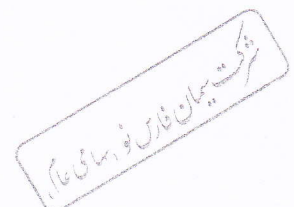 شرکت سیمان فارس نو (سهامی عام)